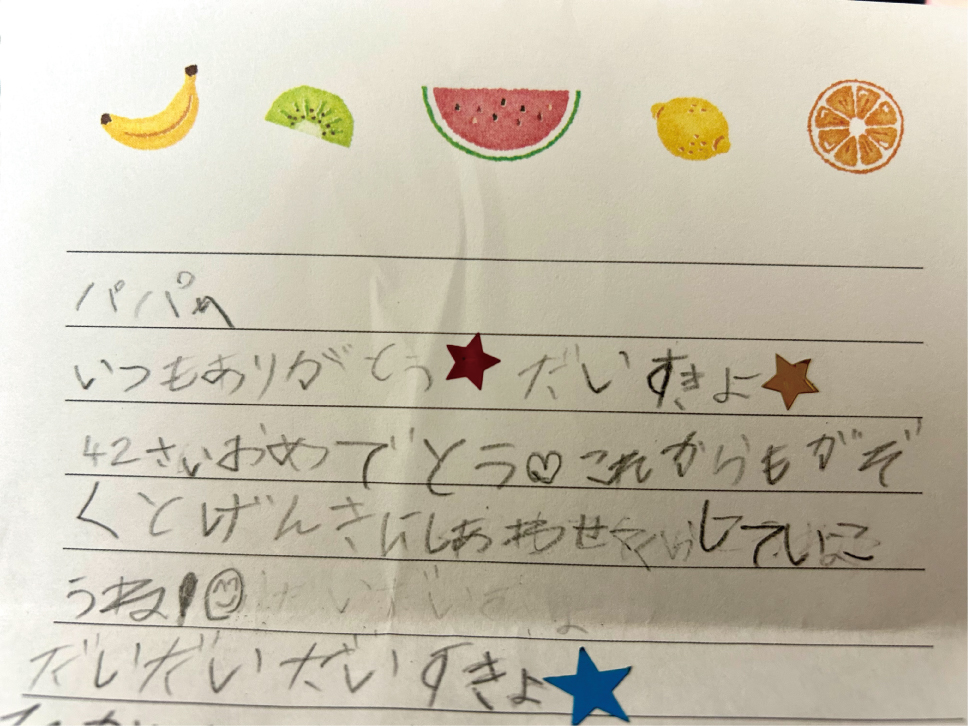 パパへ
いつもありがとう だいすきよ
42さいおめでとう♡これからもがぞ
くとげんきにしあわせ していこ
うね!
だいだいだいすきよ